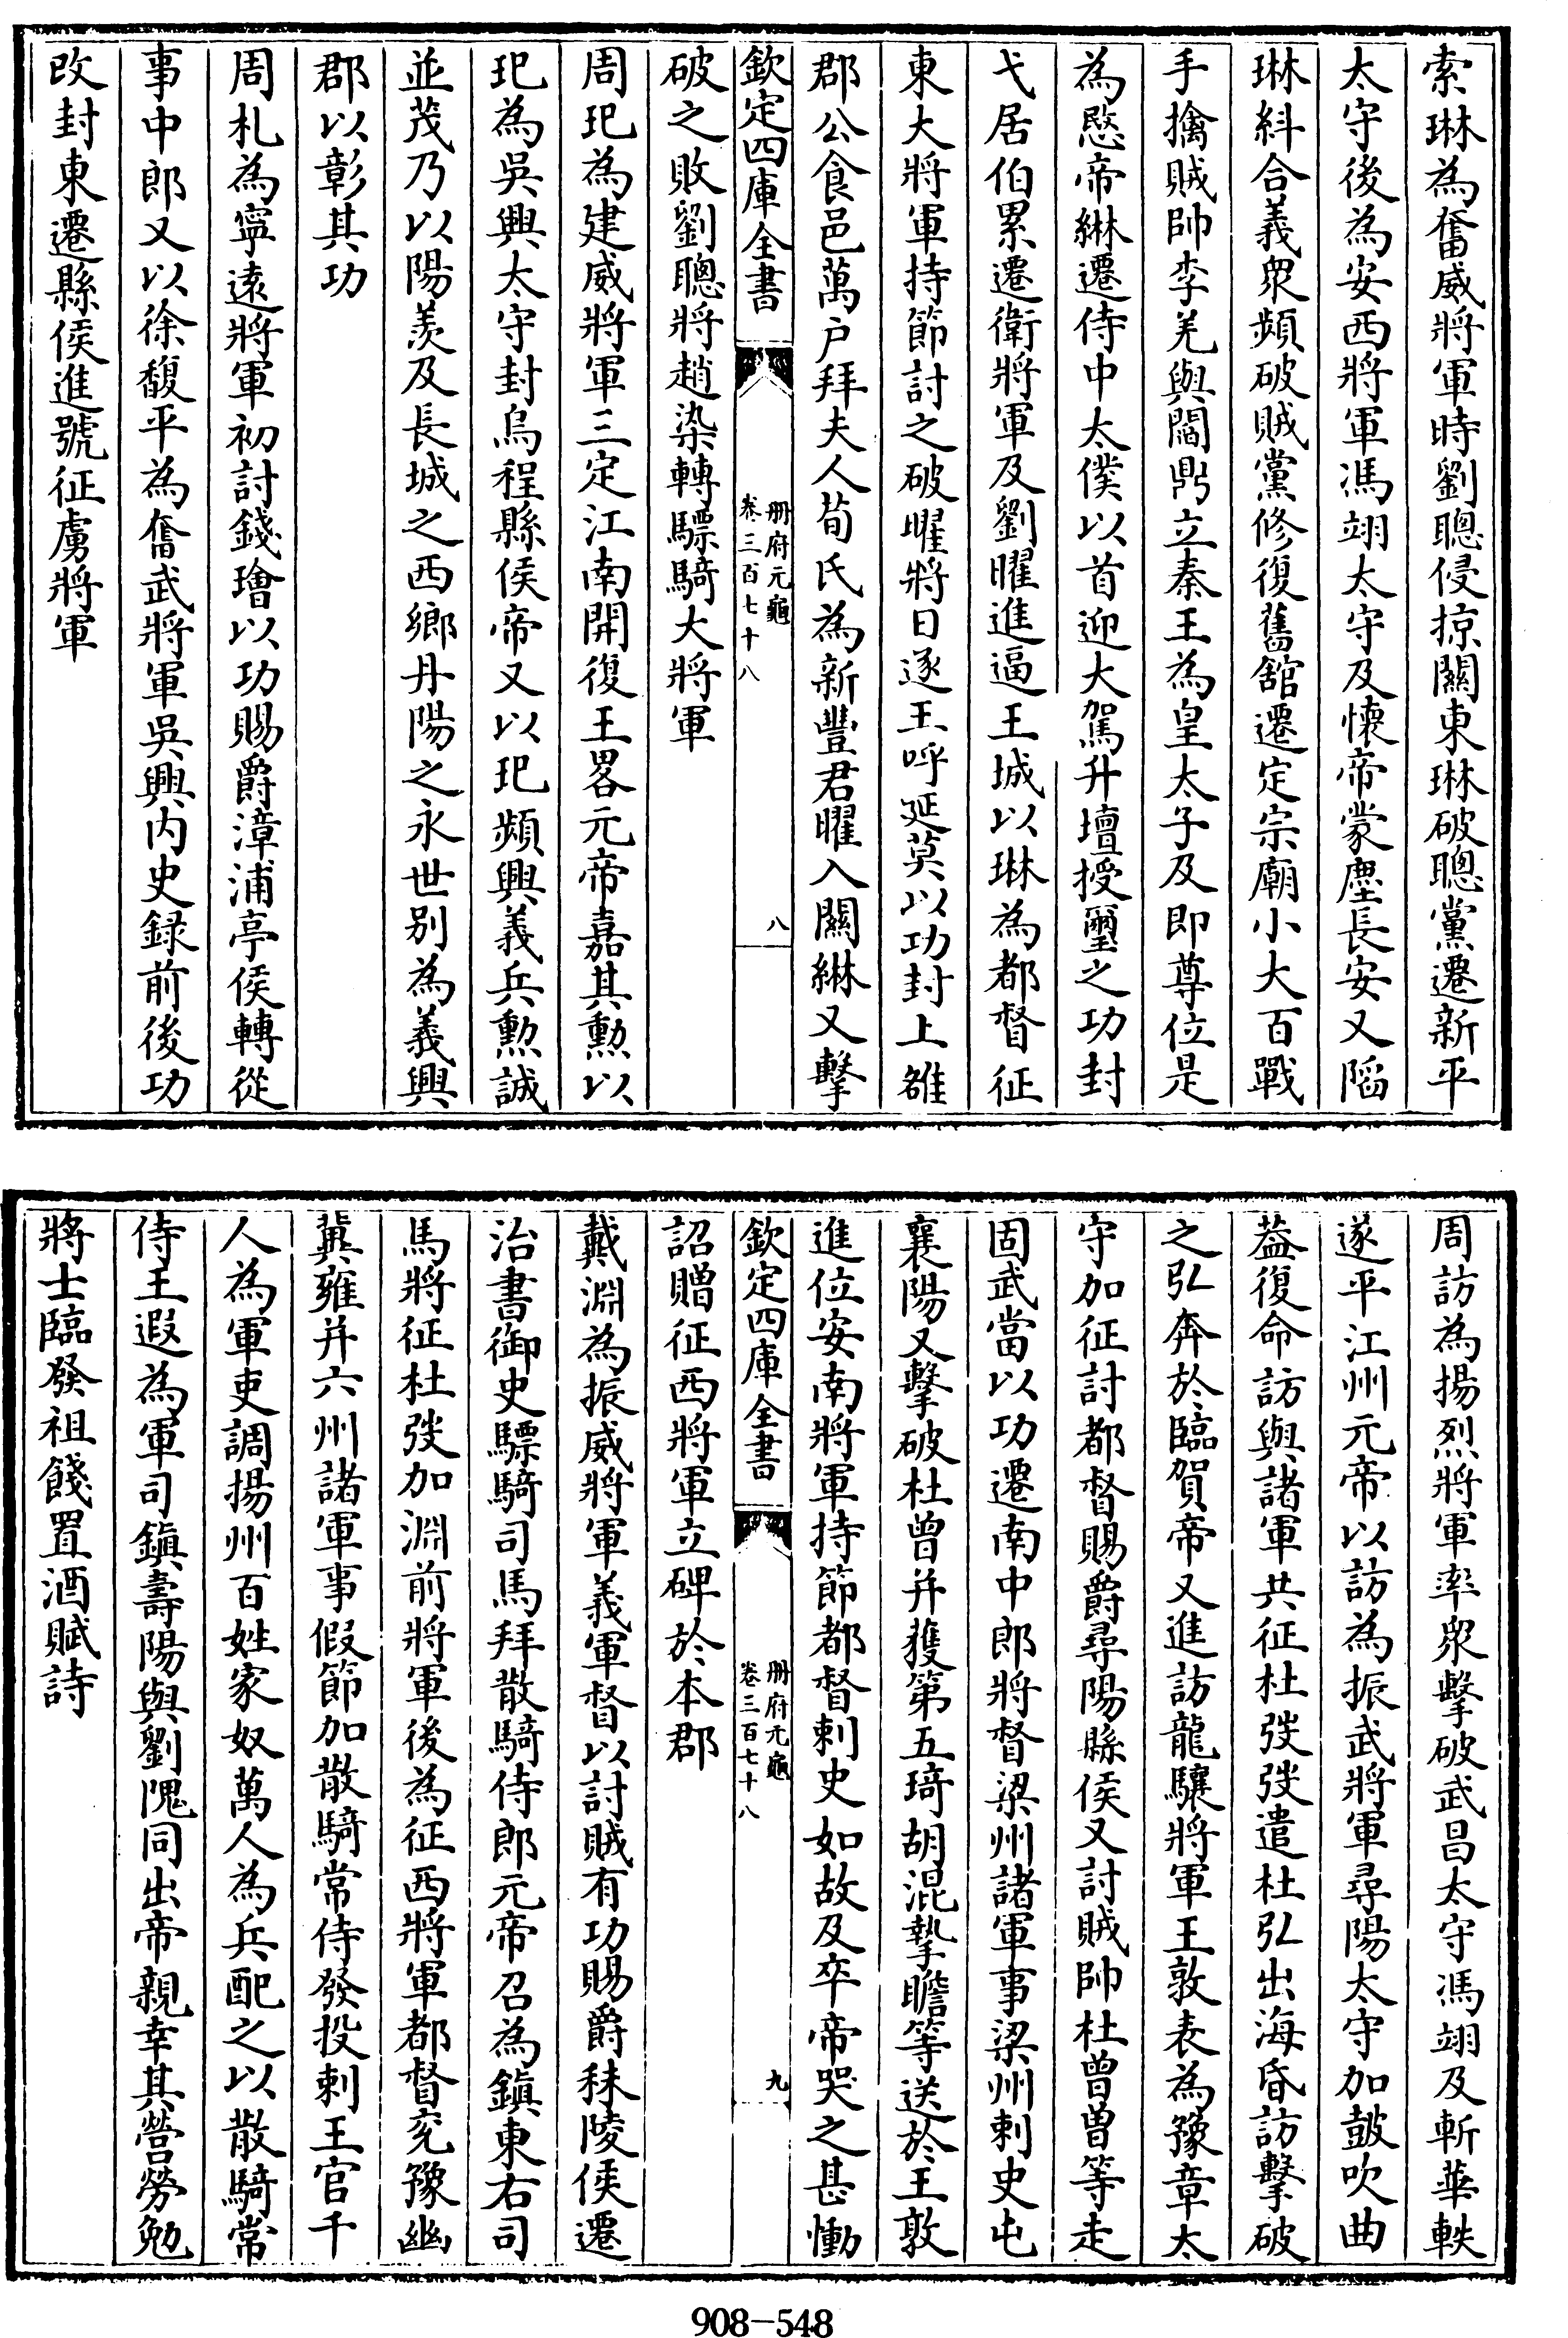 索琳為奮威將軍時劉聰侵掠關東琳破聰黨遷新平
太守後為安西將軍馮翊太守及懷帝蒙塵長安又陷
琳糾合義衆頻破賊黨修復舊舘遷定宗廟小大百戰
手擒賊帥李羌與閻鼎立秦王為皇太子及即尊位是
為愍帝綝遷侍中太僕以首迎大駕升壇授璽之功封
弋居伯累遷衛將軍及劉曜進逼王城以琳為都督征
東大將軍持節討之破曜將日逐王呼延莫以功封上雒
郡公食邑萬户拜夫人荀氏為新豐君曜入關綝又擊
欽定四庫全書
册府元龜
卷三百七十八
八
破之敗劉聰將趙染轉驃騎大將軍
周玘為建威將軍三定江南開復王畧元帝嘉其勲以
玘為吳興太守封烏程縣侯帝又以玘頻興義兵勲誠
並茂乃以陽羨及長城之西鄉丹陽之永世别為義興
郡以彰其功
周札為寧遠將軍初討錢璯以功賜爵漳浦亭侯轉從
事中郎又以徐馥平為奮武將軍吳興内史録前後功
改封東遷縣侯進號征虜將軍
周訪為揚烈將軍率衆擊破武昌太守馮翊及斬華軼
遂平江州元帝以訪為振武將軍尋陽太守加鼓吹曲
葢復命訪與諸軍共征杜弢弢遣杜弘出海昏訪擊破
之弘奔於臨賀帝又進訪龍驤將軍王敦表為豫章太
守加征討都督賜爵尋陽縣侯又討賊帥杜曾曾等走
固武當以功遷南中郎將督梁州諸軍事梁州刺史屯
襄陽又擊破杜曾并獲第五琦胡混摯瞻等送於王敦
進位安南將軍持節都督刺史如故及卒帝哭之甚慟
欽定四庫全書
册府元龜
卷三百七十八
九
詔贈征西將軍立碑於本郡
戴淵為振威將軍義軍督以討賊有功賜爵秣陵侯遷
治書御史驃騎司馬拜散騎侍郎元帝召為鎮東右司
馬將征杜弢加淵前將軍後為征西將軍都督兖豫幽
冀雍并六州諸軍事假節加散騎常侍發投刺王官千
人為軍吏調揚州百姓家奴萬人為兵配之以散騎常
侍王遐為軍司鎮壽陽與劉隗同出帝親幸其營勞勉
將士臨發祖餞置酒賦詩
908-548